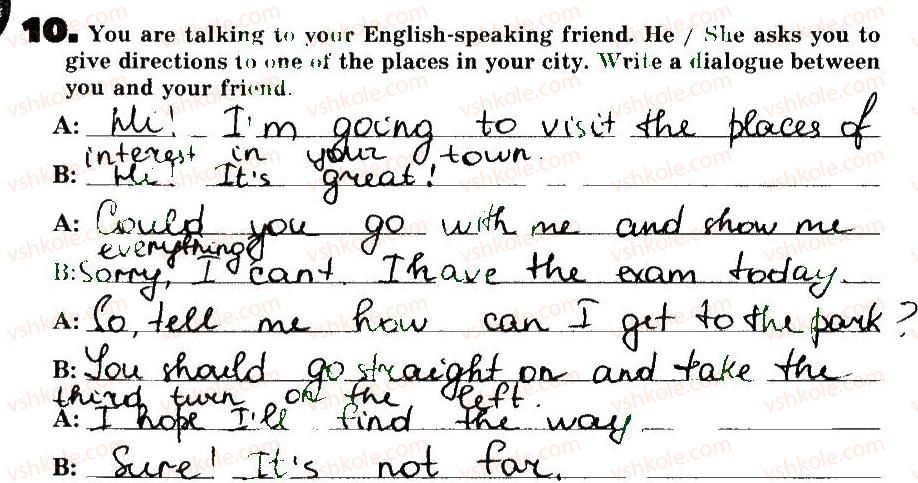 10. You are talking to your English-speaking friend. He / She asks you to
give directions to one of the places in your city. Write a dialogue between
you and your friend.
A: Hi! I'm going to visit the places of
interest in your town.
B: Hi! It's great!
A: Could you go with me and show me
everything
B: Sorry, I can't. I have the exam today.
A: So, tell me how can I get to the park?
B: You should go straight on and take the
third turn on the left.
A: I hope I'll find the way
B: Sure! It's not far.